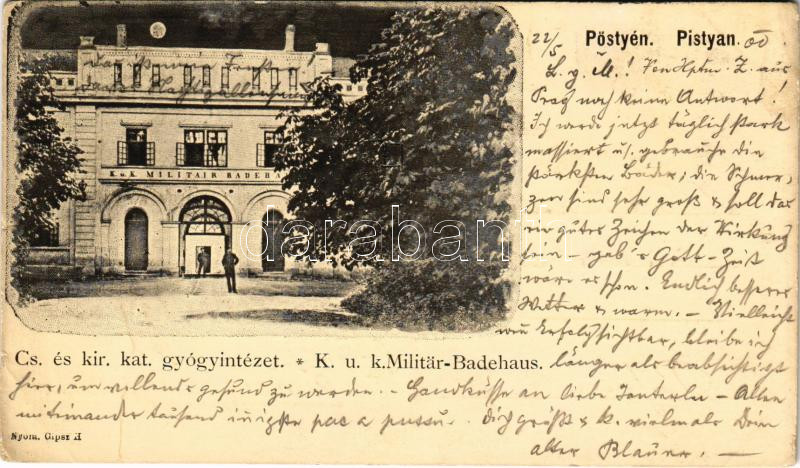 22/5 Pöstyén. Pistyan. 00
L. g. M.! Von Hptm. Z. aus
Prag noch keine Antwort!
Ich werde jetzt täglich stark
massiert u. gebrauche die
stärksten Bäder; die Schmer-
zen sind sehr groß & soll das
ein gutes Zeichen der Wirkung
sein - geb's Gott - Zeit
wäre es schon. Endlich besseres
Wetter & warm. - Vielleicht
wenn Erfolg sichtbar, bleibe ich
länger als beabsichtigt
K. u. K. MILITAIR BADEH
darabanth
Cs. és kir. kat. gyógyintézet. * K. u. k. Militär-Badehaus.
hier, um vollends gesund zu werden. - Handküsse an liebe Tanterln - Allen
miteinander tausend innigste pac a pussu. Dich grüßt & k. vielmals Dein
alter Blauer. -
Nyom. Gipsz H